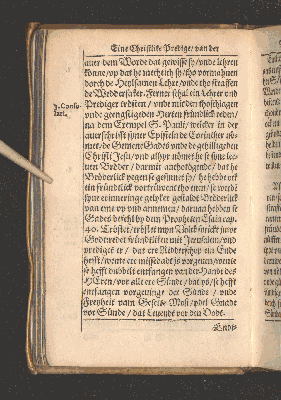 Eine Christlike Predige/ van der
auer dem Worde dat gewisse sy/ vnde lehren
könne/ vp dat he mechtich sy/ tho vormahnen
dorch de Heylsamen Lehre/ vnde tho straffen
de Wedderseker. Ferner schal ein Lehrer vnd
Prediger trösten/ vnde mit den
vnde geengstigeden Herten fründtlick reden/
na dem Exempel S. Pauli/ welcker in der
auerschrifft syner Epistel de Corinther
met/ de Gemene Gades vnde de gehilligeden
Christi Jesu/ vnd alhyr nömet he se syne leeuen
Bröder/ darmit antheögende/ dat he
Brödderlick yegen se gesinnet sy/ he hebbe
ein fründtlick vortruwent tho en/ se werden
syne erinneringe gelyker gestalt Brödderlick
van em vp vnd annemen/ darvan hebben se
Gades befehl by dem Propheten Esaia cap.
40. Tröstet/ tröstet myn Volck sprickt juwe
Godt/ redet fründtliken mit Jerusalem/ vnd
prediget er/ dat ere Ridderschop ein Ende
hefft/ wente ere missedadt ys vorgeuen/ wente
se hefft dübbelt entfangen van der Handt des
HEren/ vor alle ere Sünde/ dat ys/ se hefft
entfangen vorgeuinge der Sünde/ vnde
Fryheit vam Gesette Mosi/ Gnade
vor Sünde/ dat Leuendt vor den Dodt.